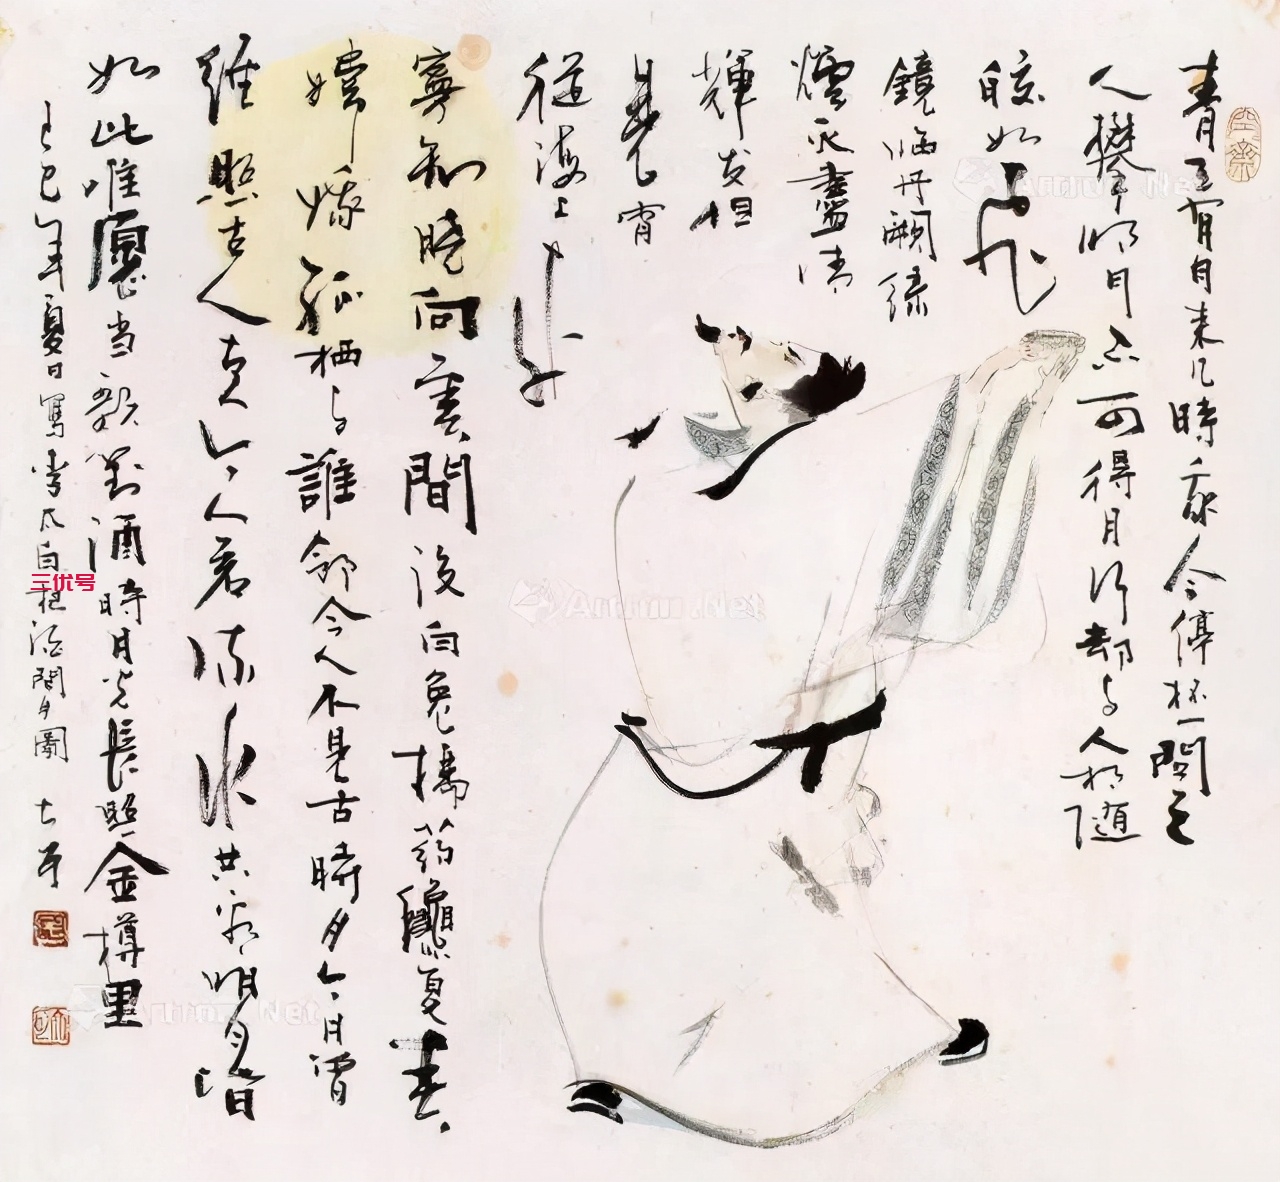 青天有月来几時我今停杯一問之
人攀明月不可得月行却与人相随
皎如飞
鏡临丹闕绿
煙灭盡清
輝发但
見宵
從海上来
寧知曉向雲間没白兔搗药秋复春
嫦娥孤栖与誰邻今人不見古時月今月曾
经照古人古人今人若流水共看明月皆
如此唯愿当歌對酒時月光長照金樽里
巳年夏日寫李太白把酒問月圖
三优号
Artimg.Net